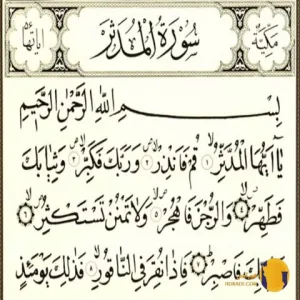 مكية
سورة المدثر
اياتها ٥٦
بسم الله الرحمن الرحيم
يا ايها المدثر ١ قم فانذر ٢ وربك فكبر ٣ وثيابك
فطهر ٤ والرجز فاهجر ٥ ولا تمنن تستكثر ٦
فاصبر ٧ فاذا نقر في الناقور ٨ فذلك يومئذ